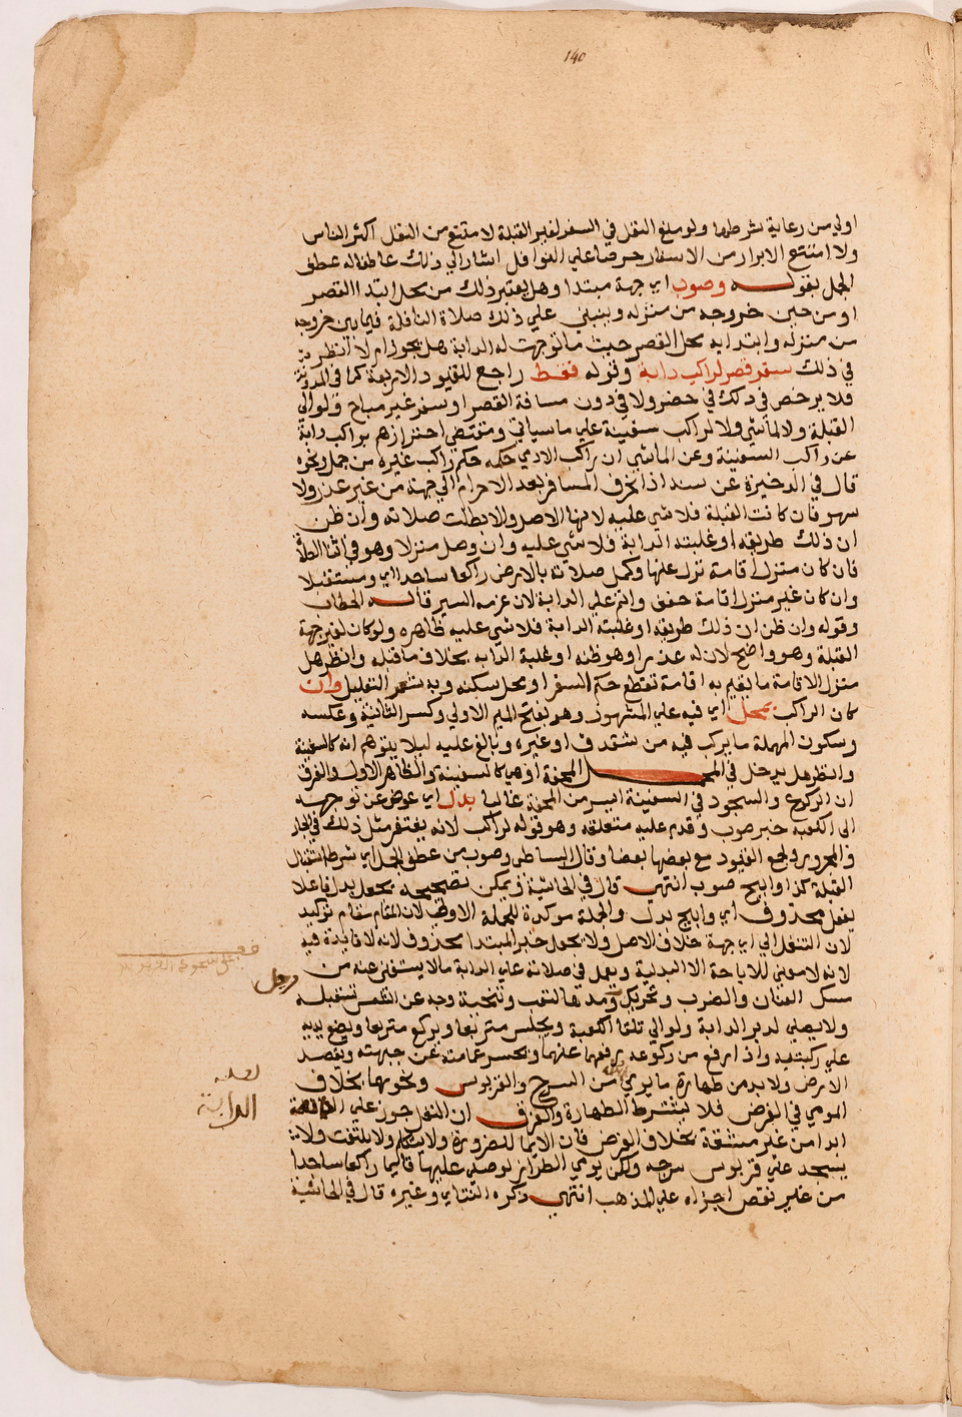 140
اولي من رعاية شرطها ولو منع النفل في السفر لغير القبلة لامتنع من النفل اكثر الناس
ولا امتنع الابرار من الاسفار حرصا علي النوافل اشار الي ذلك عاطفا له عطف
الجمل بقوله وصوب اي جهة مبتدا وهل يعتبر ذلك من محل ابتدا القصر
او من حين خروجه من منزله وينبني علي ذلك صلاة النافلة فيما بين خروجه
من منزله وابتدايه محل القصر حيث ما توجهت له الدابة هل يجوز ام لا انظره
في ذلك سفر قصر لراكب دابة وقوله فقط راجع للقيود الاربعة كما في المدونة
فلا يرخص في ذلك في حضر ولا في دون مسافة القصر او سفر غير مباح ولو الي
القبلة ولا لماشي ولا لراكب سفينة علي ما سياتي ومقتضي احترازهم براكب دابة
عن راكب السفينة وعن الماشي ان راكب الادمي حكمه حكم راكب غيره من جمل ونحوه
قال في الدخيرة عن سند اذا انحرف المسافر بعد الاحرام الي جهة من غير عذر ولا
سهو فان كانت القبلة فلا شي عليه لانها الاصل والا بطلت صلاته وان ظن
ان ذلك طريقه او غلبته الدابة فلا شي عليه وان وصل منزلا وهو في اثنا الطلق
فان كان منزل اقامة نزل عنها وكمل صلاته بالارض راكعا ساجدا اي ومستقبلا
وان كان غير منزل اقامة خفف واتم علي الدابة لان عزمه السير قاله الحطاب
وقوله وان ظن ان ذلك طريقه او غلبته الدابة فلا شي عليه ظاهره ولو كان لغير جهة
القبلة وهو واضح لان له عذرا وهو ظنه او غلبة الدابه بخلاف ما قبله وانظر هل
منزل الاقامة ما يقيم به اقامة تقطع حكم السفر او محل سكنه وبه يشعر التعليل وان
كان الراكب بمحمل اي فيه علي المشهور وهو بفتح الميم الاولي وكسر الثانية وعكسه
وسكون المهملة ما يركب فيه من شقدف او غيره وبالغ عليه ليلا يتوهم انه كالسفينة
وانظر هل يدخل في المحمل المحفة او هي كالسفينة والظاهر الاول والفرق
ان الركوع والسجود في السفينة ايسر من المحفة غالبا بدل اي عوض عن توجهه
الي الكعبه خبر صوب وقدم عليه متعلقه وهو قوله لراكب لانه يغتفر مثل ذلك في الجار
والمجرور ولجمع القيود مع بعضها بعضا وقال البساطي وصوب من عطف الجمل اي شرط استقبال
القبلة كذا وابيح صوب انتهي قال في الحاشية ويمكن تصحيحه بجعل بدل فاعلا
بفعل محذوف اي وابيح بدل والجملة موكدة للجملة الاولي لان المقام مقام توكيد
لان التنفل الي اي جهة خلاف الاصل ولا يجعل خبر المبتدا محذوف لانه لا فايدة فيه
لانه لا معني للاباحة الا البدلية ويعمل في صلاته علي الدابة ما لا يستغني عنه من
مسك العنان والضرب وتحريك رجل ومدها لتعب وتنحية وجه عن الشمس تستقبله
ولا يصلي لدبر الدابة ولو الي تلقا الكعبة ويجلس متربعا ويركع متربعا ويضع يديه
علي ركبتيه واذا رفع من ركوعه يرفعهما عنهما ويحسر عمامته عن جبهته ويقصد
الارض ولا بد من طهارة ما يومي من السرج والقربوس ونحوهما بخلاف
المومي في الفرض فلا يشترط الطهارة والفرق ان النفل جوز علي الدابة
ابدا من غير مشقة بخلاف الفرض فان الايما لضرورة ولا يتكلم ولا يلتفت ولا
يسجد علي قربوس سرجه ولكن يومي الطراز لو صلي عليها قايما راكعا ساجدا
من غير نقص اجزاه علي المذهب انتهي ذكره التتاي وغيره قال في الحاشية
رجل
لعله
الدابة